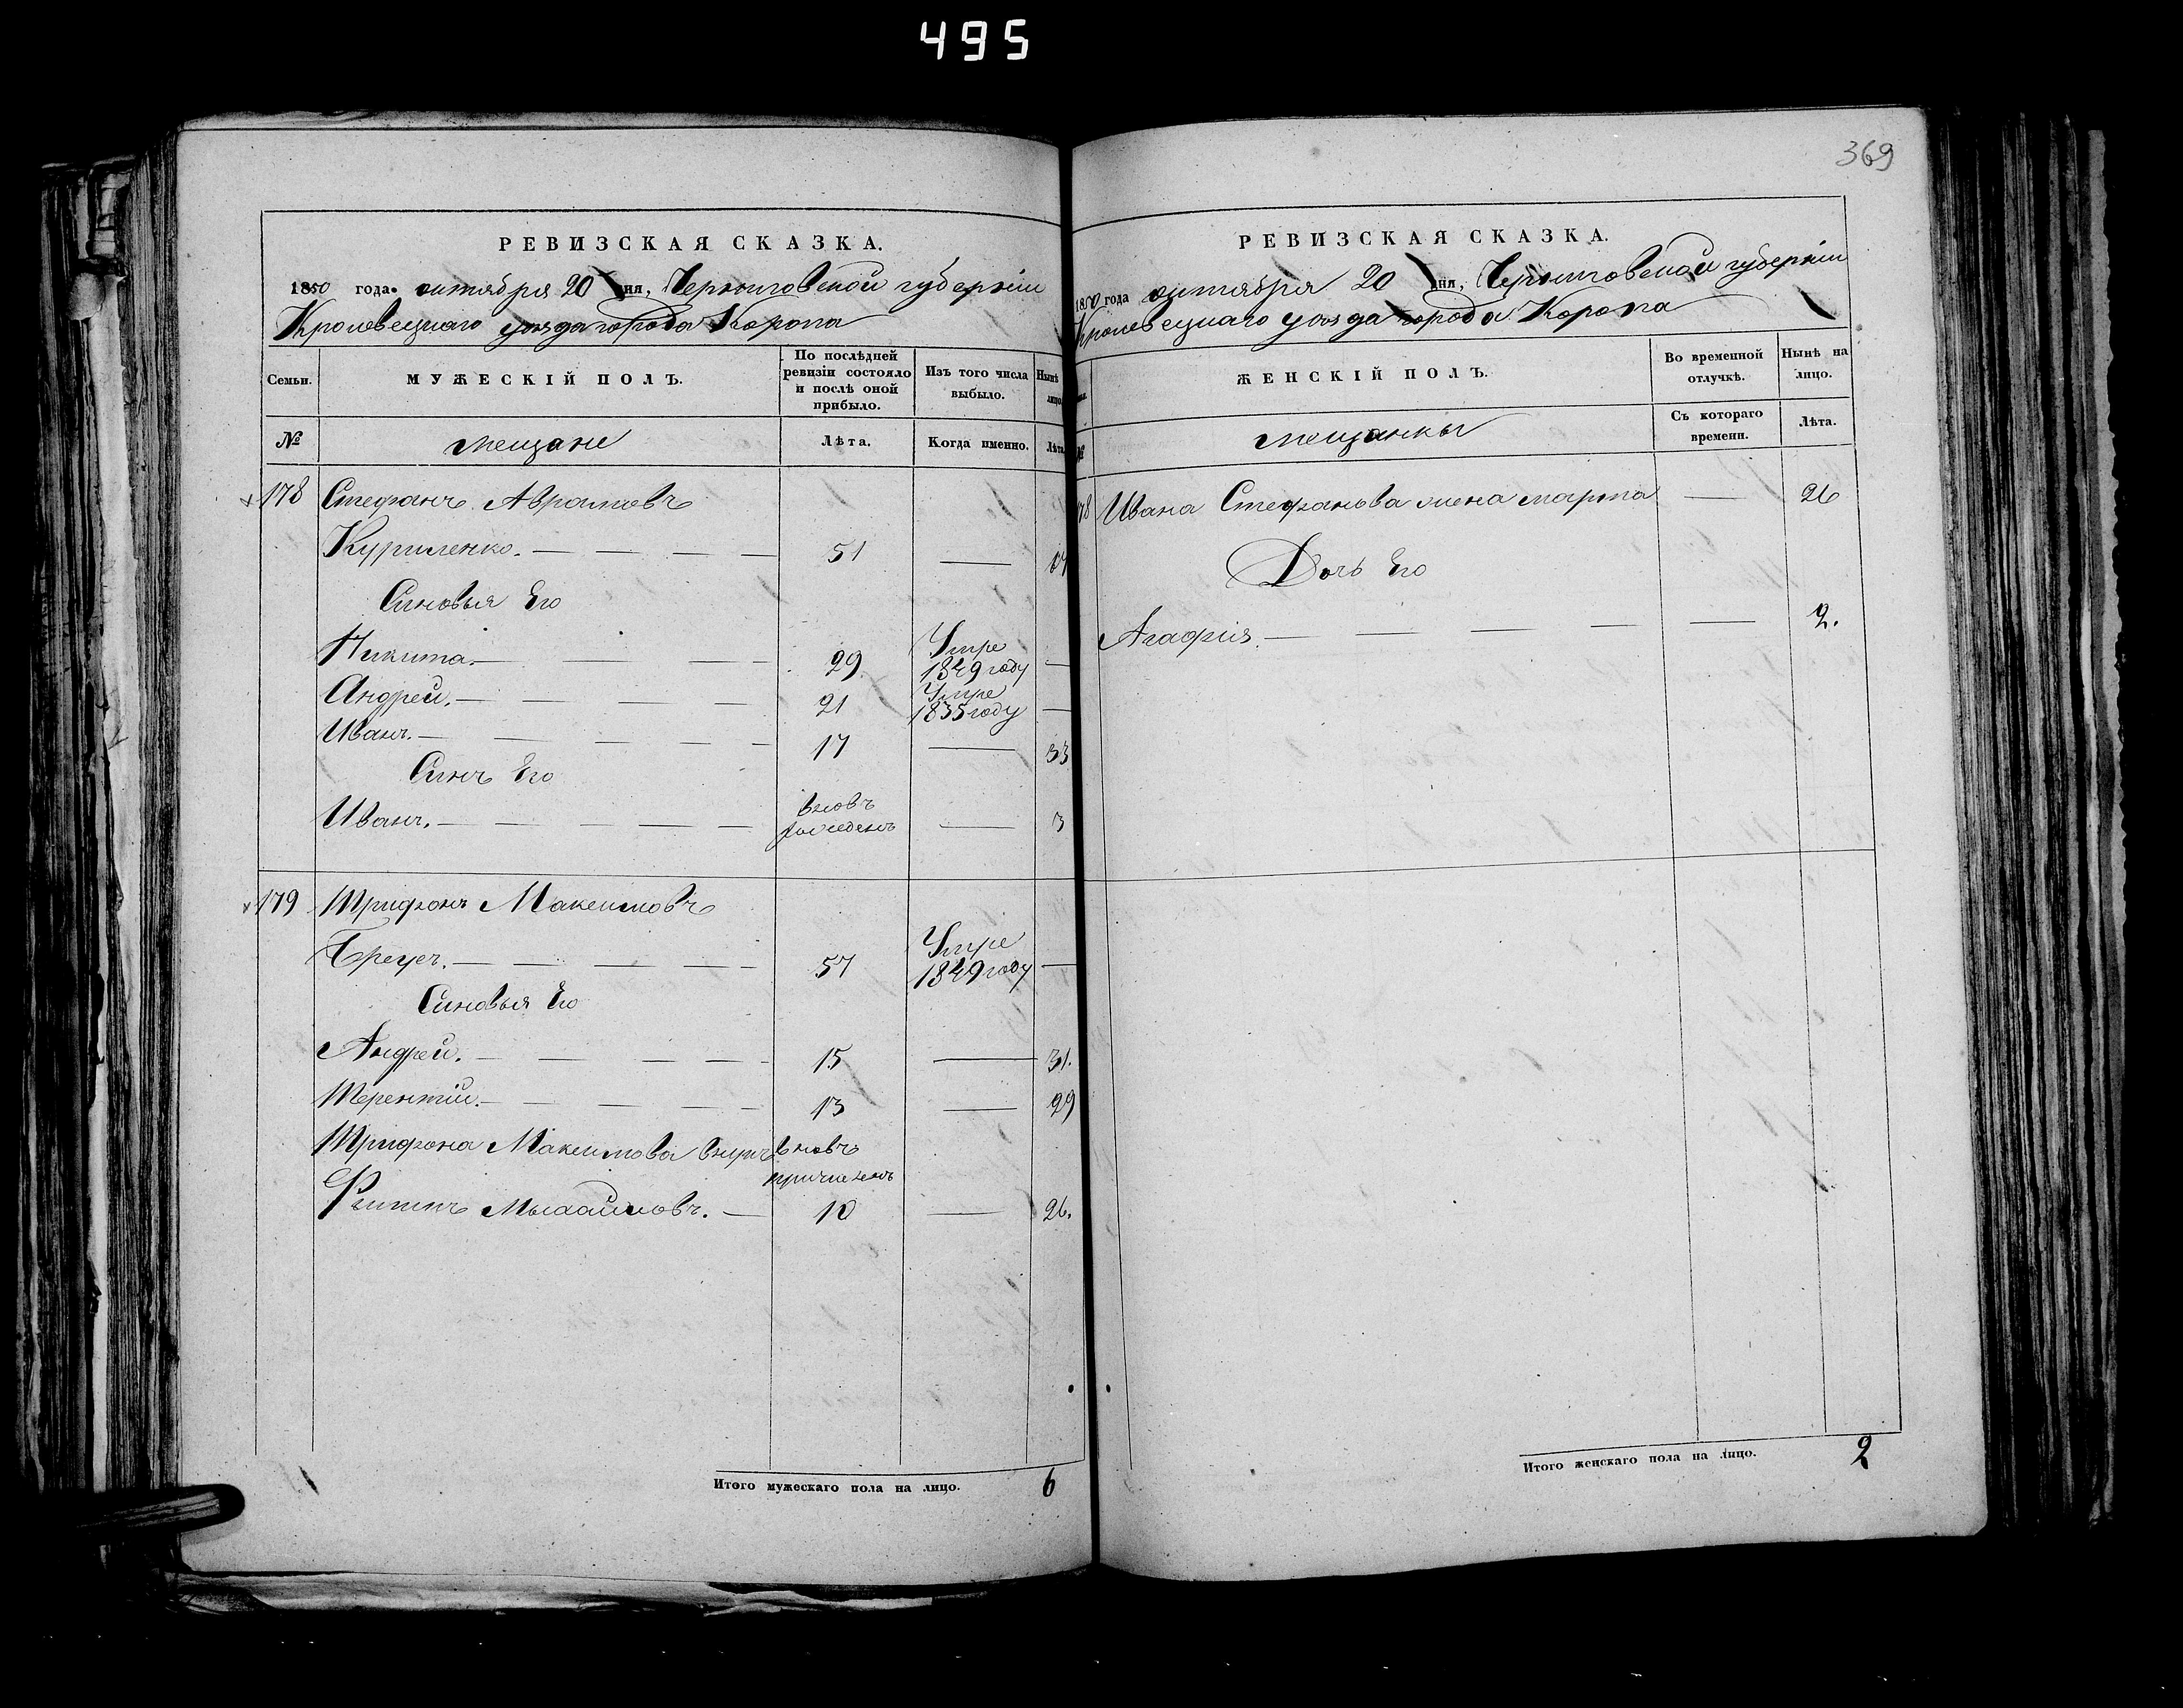 495
369
РЕВИЗСКАЯ СКАЗКА.
1850 года. октября 20 дня, Черниговской губерніи
Кролевецкаго уѣзда города Коропа
Семьи.
МУЖЕСКІЙ ПОЛЪ.
По послѣдней ревизіи состояло и послѣ оной прибыло.
Изъ того числа выбыло.
Нынѣ лицо
№
мещане
Лѣта.
Когда именно.
Лѣта
178 Стефанъ Аврамовъ
Куриленко. 51
Синовья Его
Никита. 29 Умре 1849 году
Андрей. 21 Умре 1835 году
Иванъ. 17 33
Синъ Его
Иванъ. вновь рожденъ 3
179 Трифонъ Максимовъ
57 Умре 1849 году
Синовья Его
Андрей. 15 31.
Терентій. 13 29
Трифона Максимова внукъ вновь
Филипъ Михайловъ. 10 26.
Итого мужескаго пола на лицо. 6
РЕВИЗСКАЯ СКАЗКА.
1850 года октября 20 дня, Черниговской губерніи
Кролевецкаго уѣзда города Коропа
ЖЕНСКІЙ ПОЛЪ.
Во временной отлучкѣ.
Нынѣ на лицо.
№
мещанки
Съ котораго времени.
Лѣта.
78 Ивана Стефанова жена марта 26
Дочь Его
Агафия. 2.
Итого женскаго пола на лицо. 2